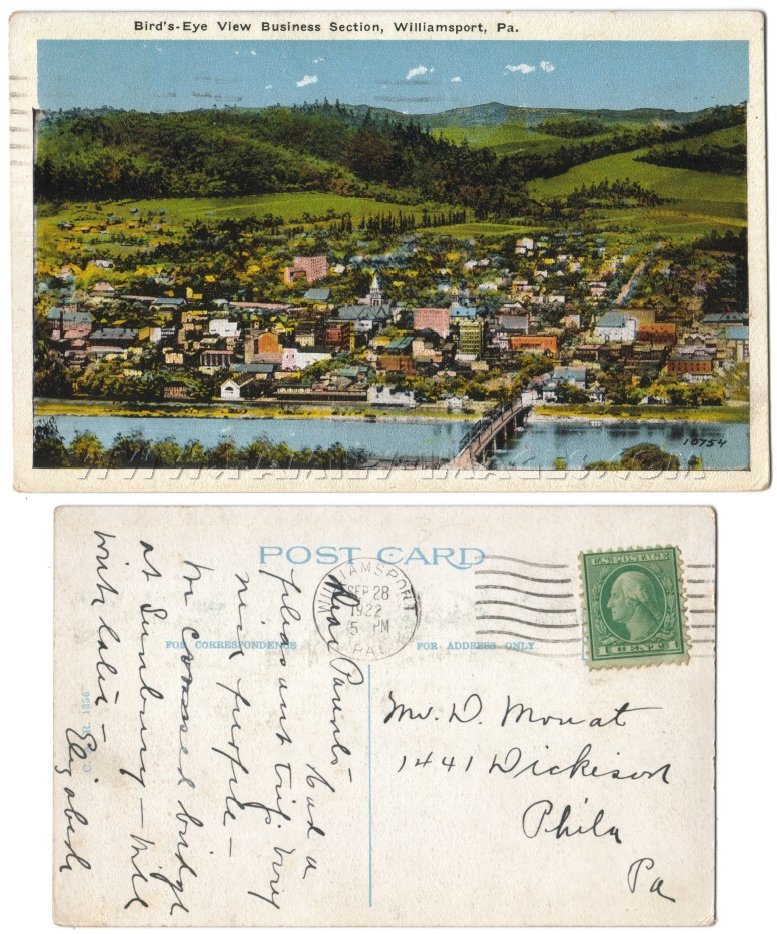 Bird's-Eye View Business Section, Williamsport, Pa.
10754
WWW.FAMILY-IMAGES.COM
POST CARD
WILLIAMSPORT
SEP 28
1922
5 PM
PA.
U.S. POSTAGE
1 CENT 1
FOR CORRESPONDENCE
FOR ADDRESS ONLY
Dear Parents
Had a
pleasant trip. Very
nice people —
We crossed bridge
at Sunbury — Will
write later —
Elizabeth
Mr. D. Mouat
1441 Dickison
Phila
Pa